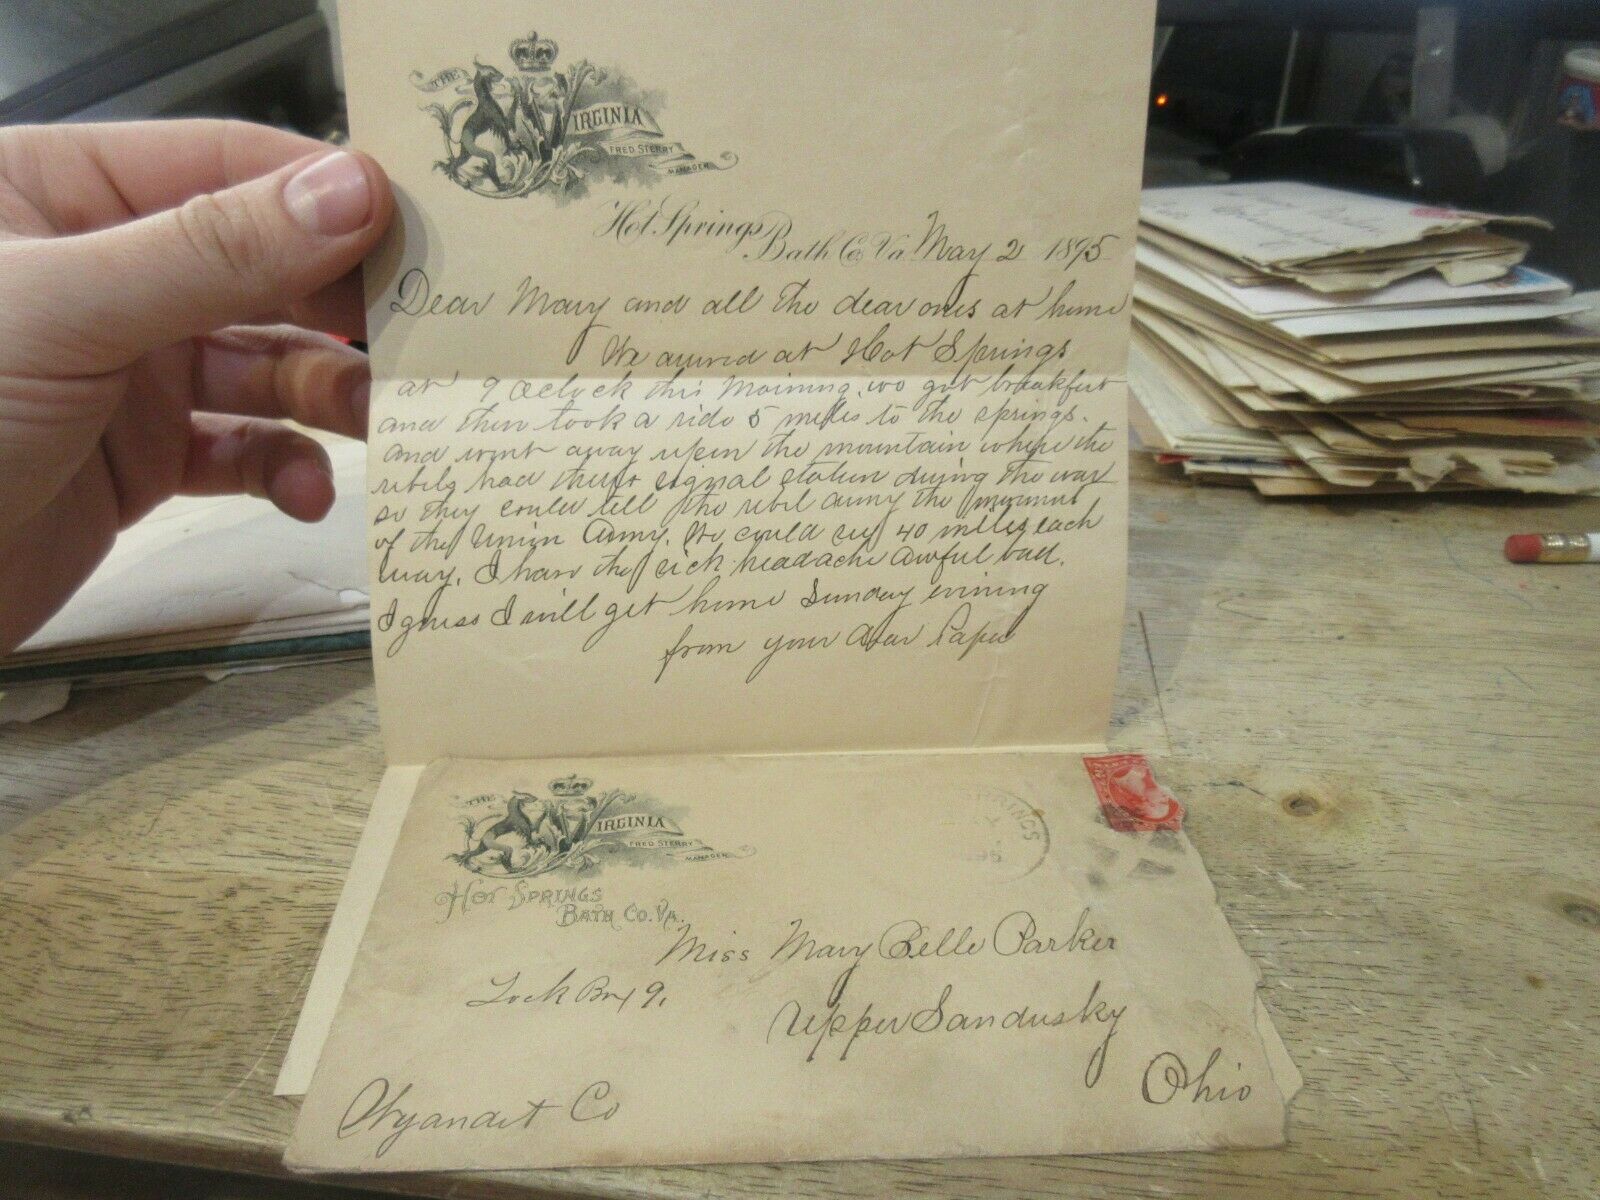 THE
VIRGINIA
FRED STERRY
MANAGER
Hot Springs
Bath Co Va May 2 1895
Dear Mary and all the dear ones at home
We arrived at Hot Springs
at 9 oclock this Morning. we got breakfust
and then took a ride 5 miles to the springs.
and went away upon the mountain where the
rebels had their signal station during the war
so they could tell the rebel army the movement
of the Union Army. We could see 40 miles each
way. I have the sick headache awful bad.
I guess I will get home Sunday evening
from your dear Papa
THE
VIRGINIA
FRED STERRY
MANAGER
HOT SPRINGS
BATH CO. VA.
Miss Mary Belle Parker
Lock Box 9.
Upper Sandusky
Ohio
Wyandot Co